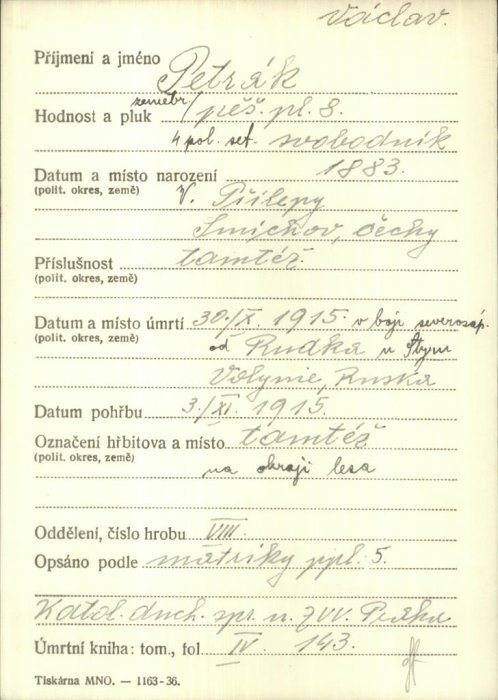 Václav.
Příjmení a jméno Petrák
zeměbr.
Hodnost a pluk pěš. pl. 8.
4 pol. set. svobodník
Datum a místo narození 1883.
(polit. okres, země) V. Přílepy
Smíchov, Čechy
Příslušnost tamtéž.
(polit. okres, země)
Datum a místo úmrtí 30./X. 1915. v boji severozáp.
(polit. okres, země) od Rudka u Styru
Volynie, Ruska
Datum pohřbu 3./XI. 1915.
Označení hřbitova a místo tamtéž
(polit. okres, země) na okraji lesa
Oddělení, číslo hrobu VIII.
Opsáno podle matriky ppl. 5.
Katol. duch. spr. u ZVV. Praha
Úmrtní kniha: tom., fol. IV. 143.
Tiskárna MNO. — 1163-36.